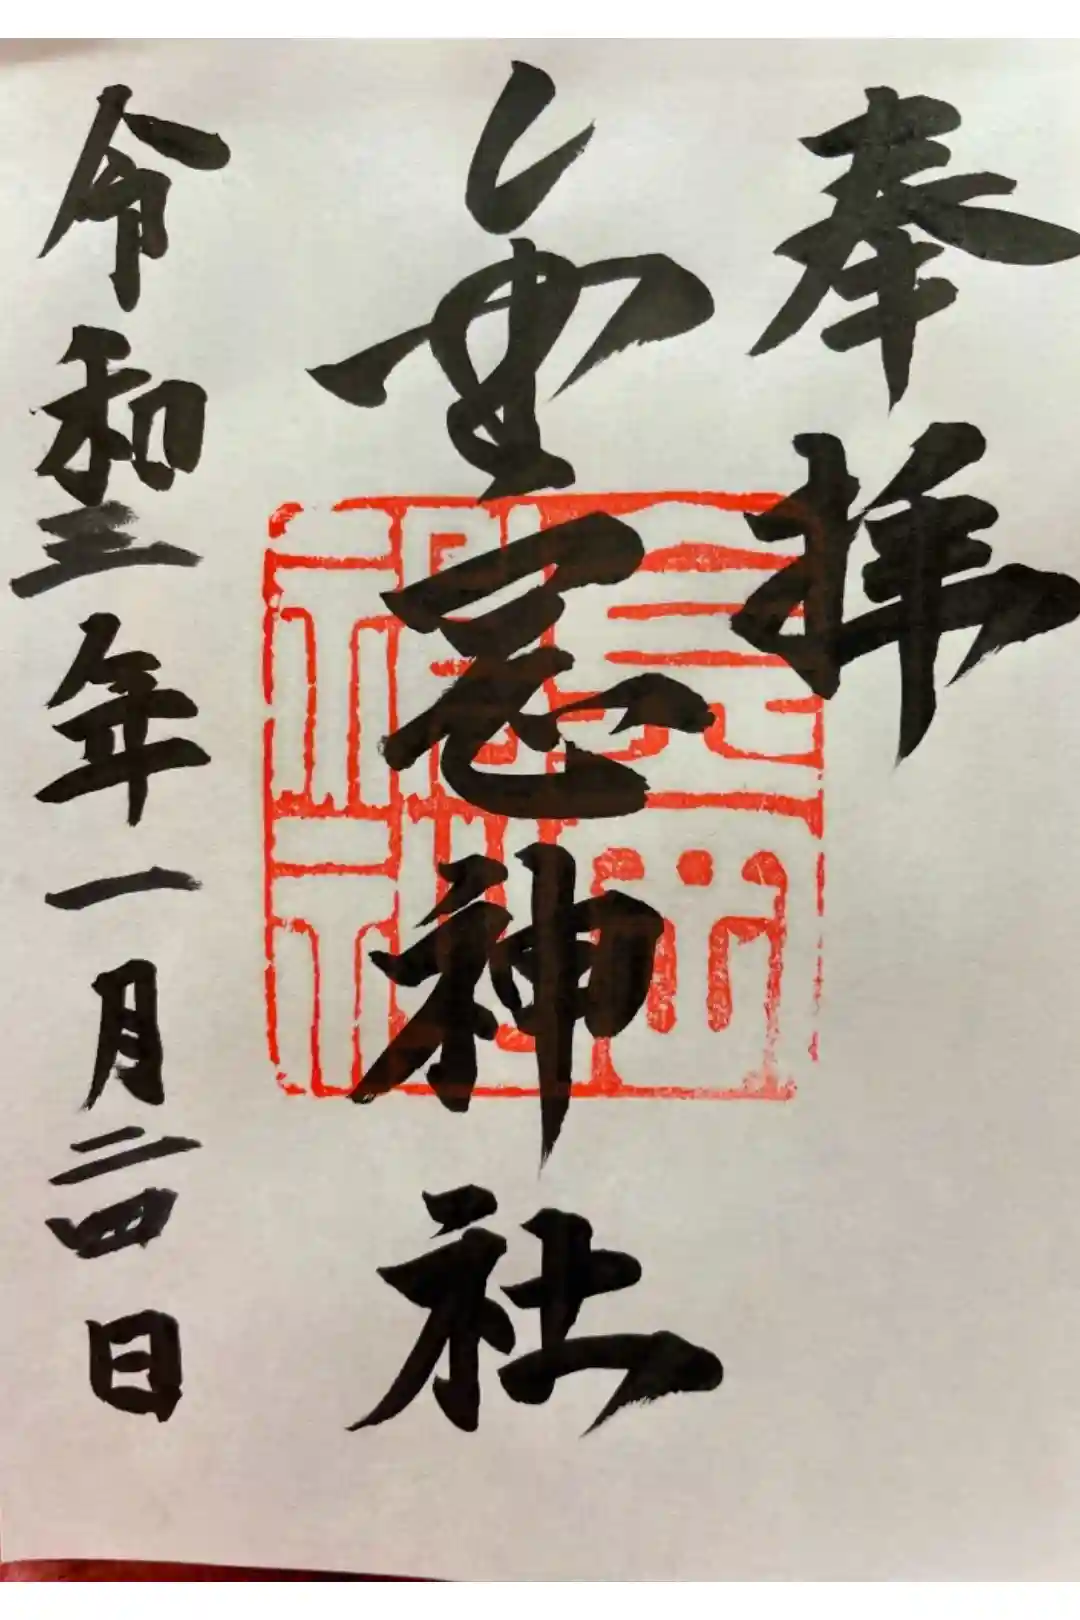 奉拝
神社
令和三年一月二四日